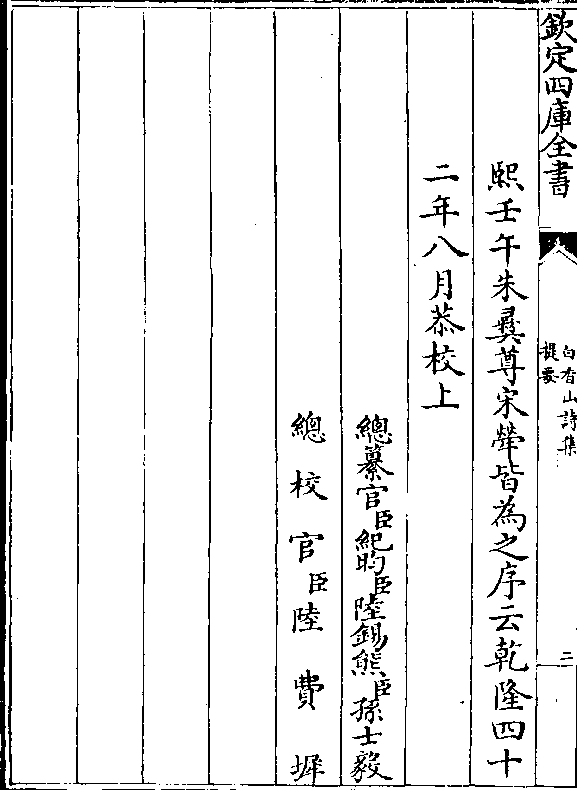 欽定四庫全書
白香山詩集
提要
二
熙壬午朱彛尊宋犖皆為之序云乾隆四十
二年八月恭校上
總纂官臣紀昀臣陸錫熊臣孫士毅
總校官臣陸費墀